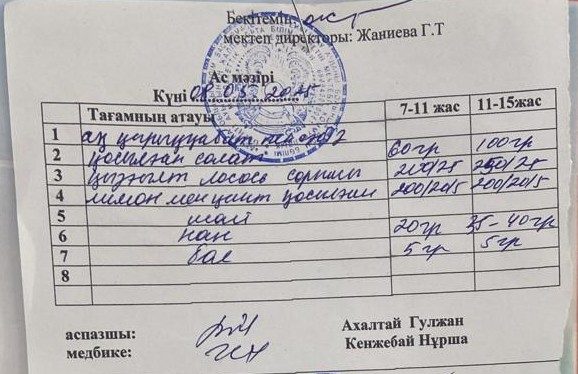 Бекітемін:
мектеп директоры: Жаниева Г.Т
Ас мәзірі
Күні 08.05.2025
Тағамның атауы 7-11 жас 11-15жас
1
2 қосылған салат 60гр 100гр
3 лосось сорпасы 200/25 250/25
4 лимон мен қант қосылған 200/20/5 200/20/5
5 шай
6 нан 20гр 35-40гр
7 бал 5гр 5гр
8
аспазшы: Ахалтай Гулжан
медбике: Кенжебай Нұрша